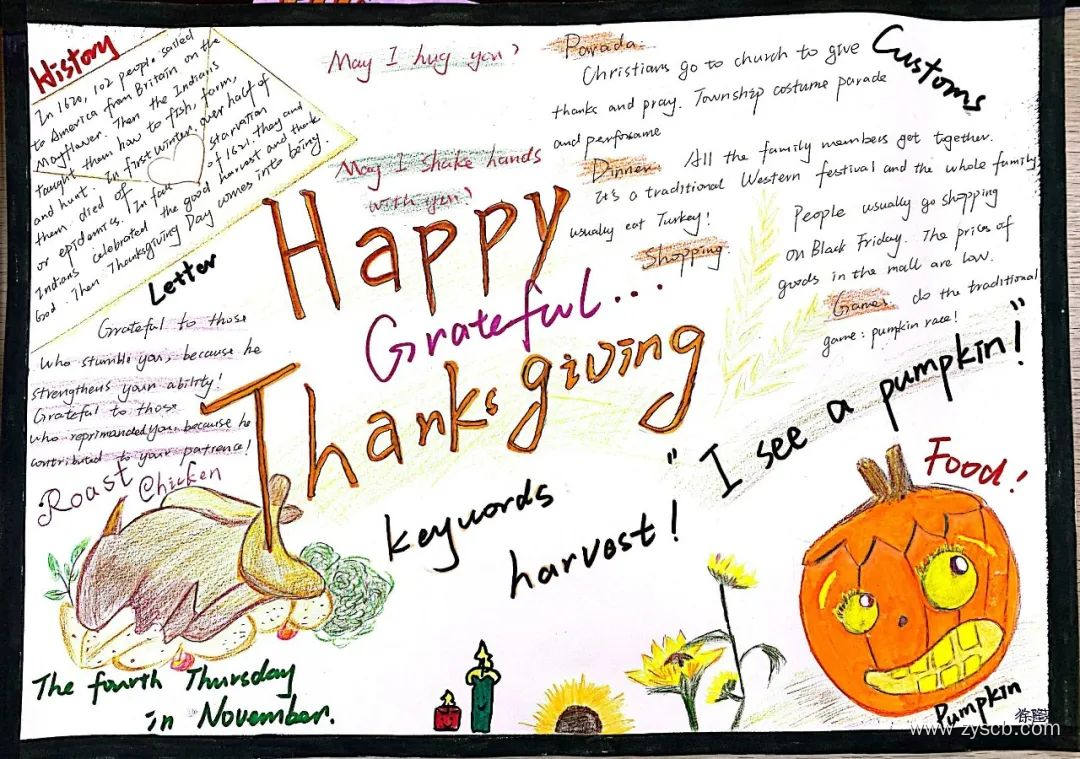 History
In 1620, 102 people sailed
to America from Britain on the
Mayflower. Then the Indians
taught them how to fish, farm,
and hunt. In first winter, over half of
them died of starvation
or epidemics. In fall of 1621, they and
Indians celebrated the good harvest and thank
God. Then Thanksgiving Day comes into being.
May I hug you?
May I shake hands
with you?
Customs
Parada.
Christians go to church to give
thanks and pray. Township costume parade
and perforsame
Dinner
All the family members get together.
It's a traditional Western festival and the whole family
usually eat Turkey!
Shopping.
People usually go shopping
on Black Friday. The prices of
goods in the mall are low.
Games. do the traditional
game: pumpkin race!
Happy
Grateful...
Thanksgiving
Letter
Grateful to those
who stumble you, because he
strengthens your ability!
Grateful to those
who reprimanded you, because he
contributed to your patience!
Roast Chicken
keywords
harvest!
"I see a pumpkin!"
Food!
The fourth Thursday
in November.
Pumpkin
www.zyscb.com